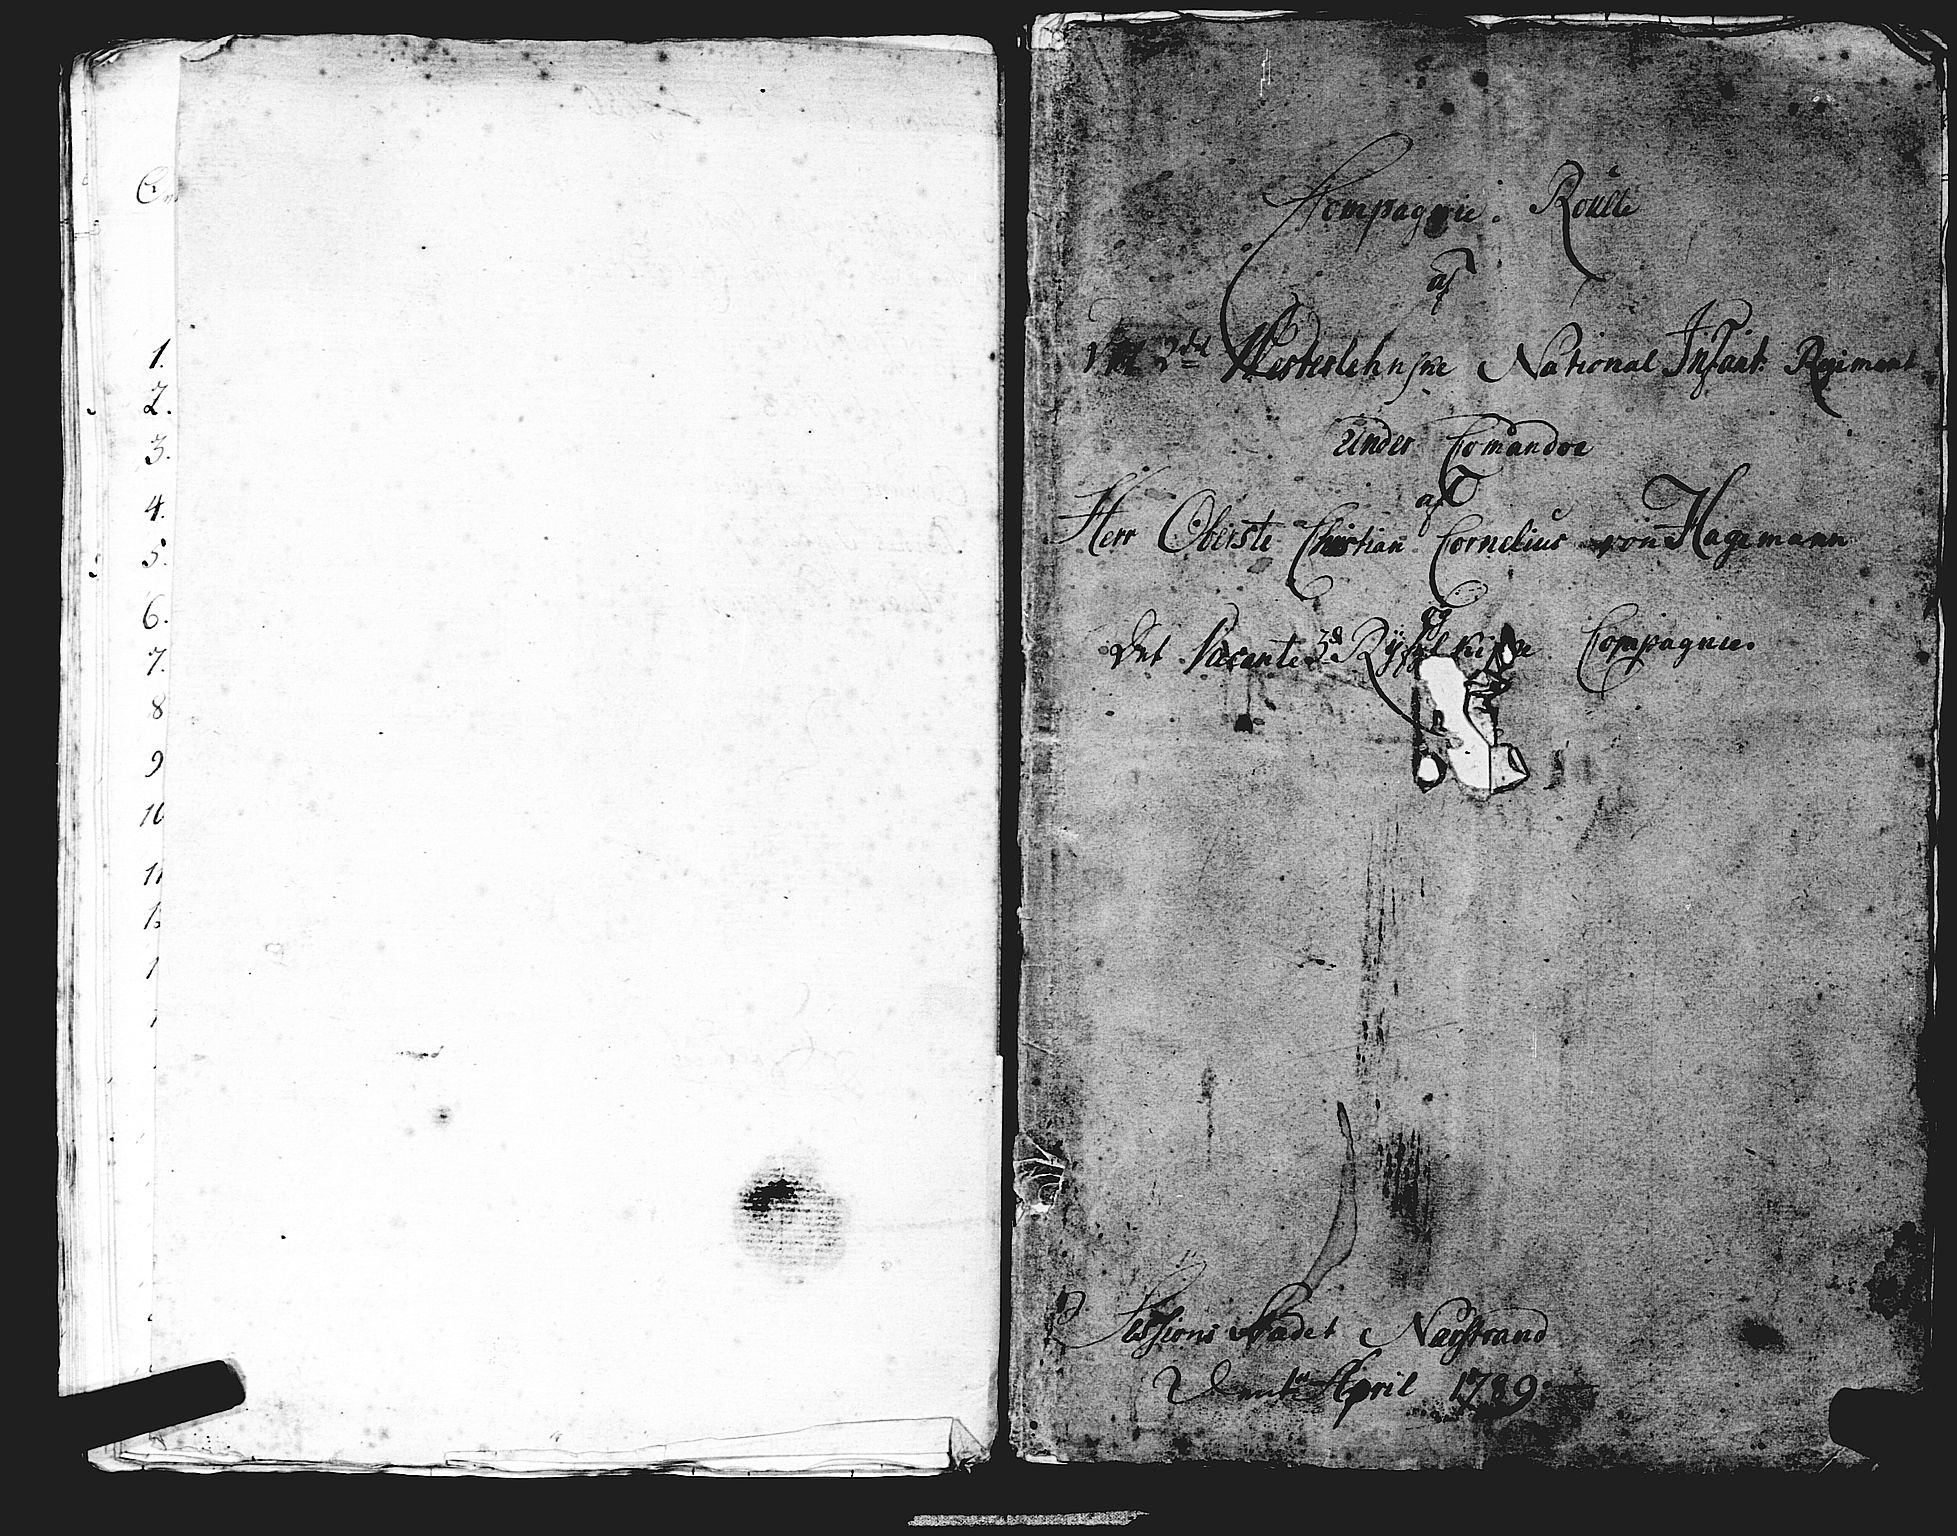 Em
1.
2.
3.
4.
5.
6.
7.
8
9
10
11
1
1
Compagnie Roulle
af
2det Westerlehnske National Infant: Regiment
Under Comandoe
af
Herr Oberste Christian Cornelius von Hagemann
og
Det Vacante 3de Ryfylkiske Compagnie.
Sessions Stædet Nærstrand
April 1789